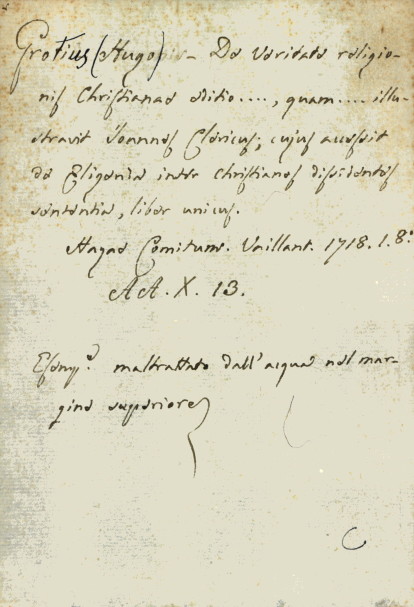 Grotius (Hugo) - De Veritate religio-
nis Christianae editio...., quam.... illu-
stravit Joannes Clericus; cujus accessit
de Eligenda inter Christianos dissidentes
sententia, liber unicus.
Hagae Comitum. Vaillant. 1718. 1. 8.º
AA. X. 13.
Esemp.e maltrattato dall'acqua nel mar-
gine superiore
C